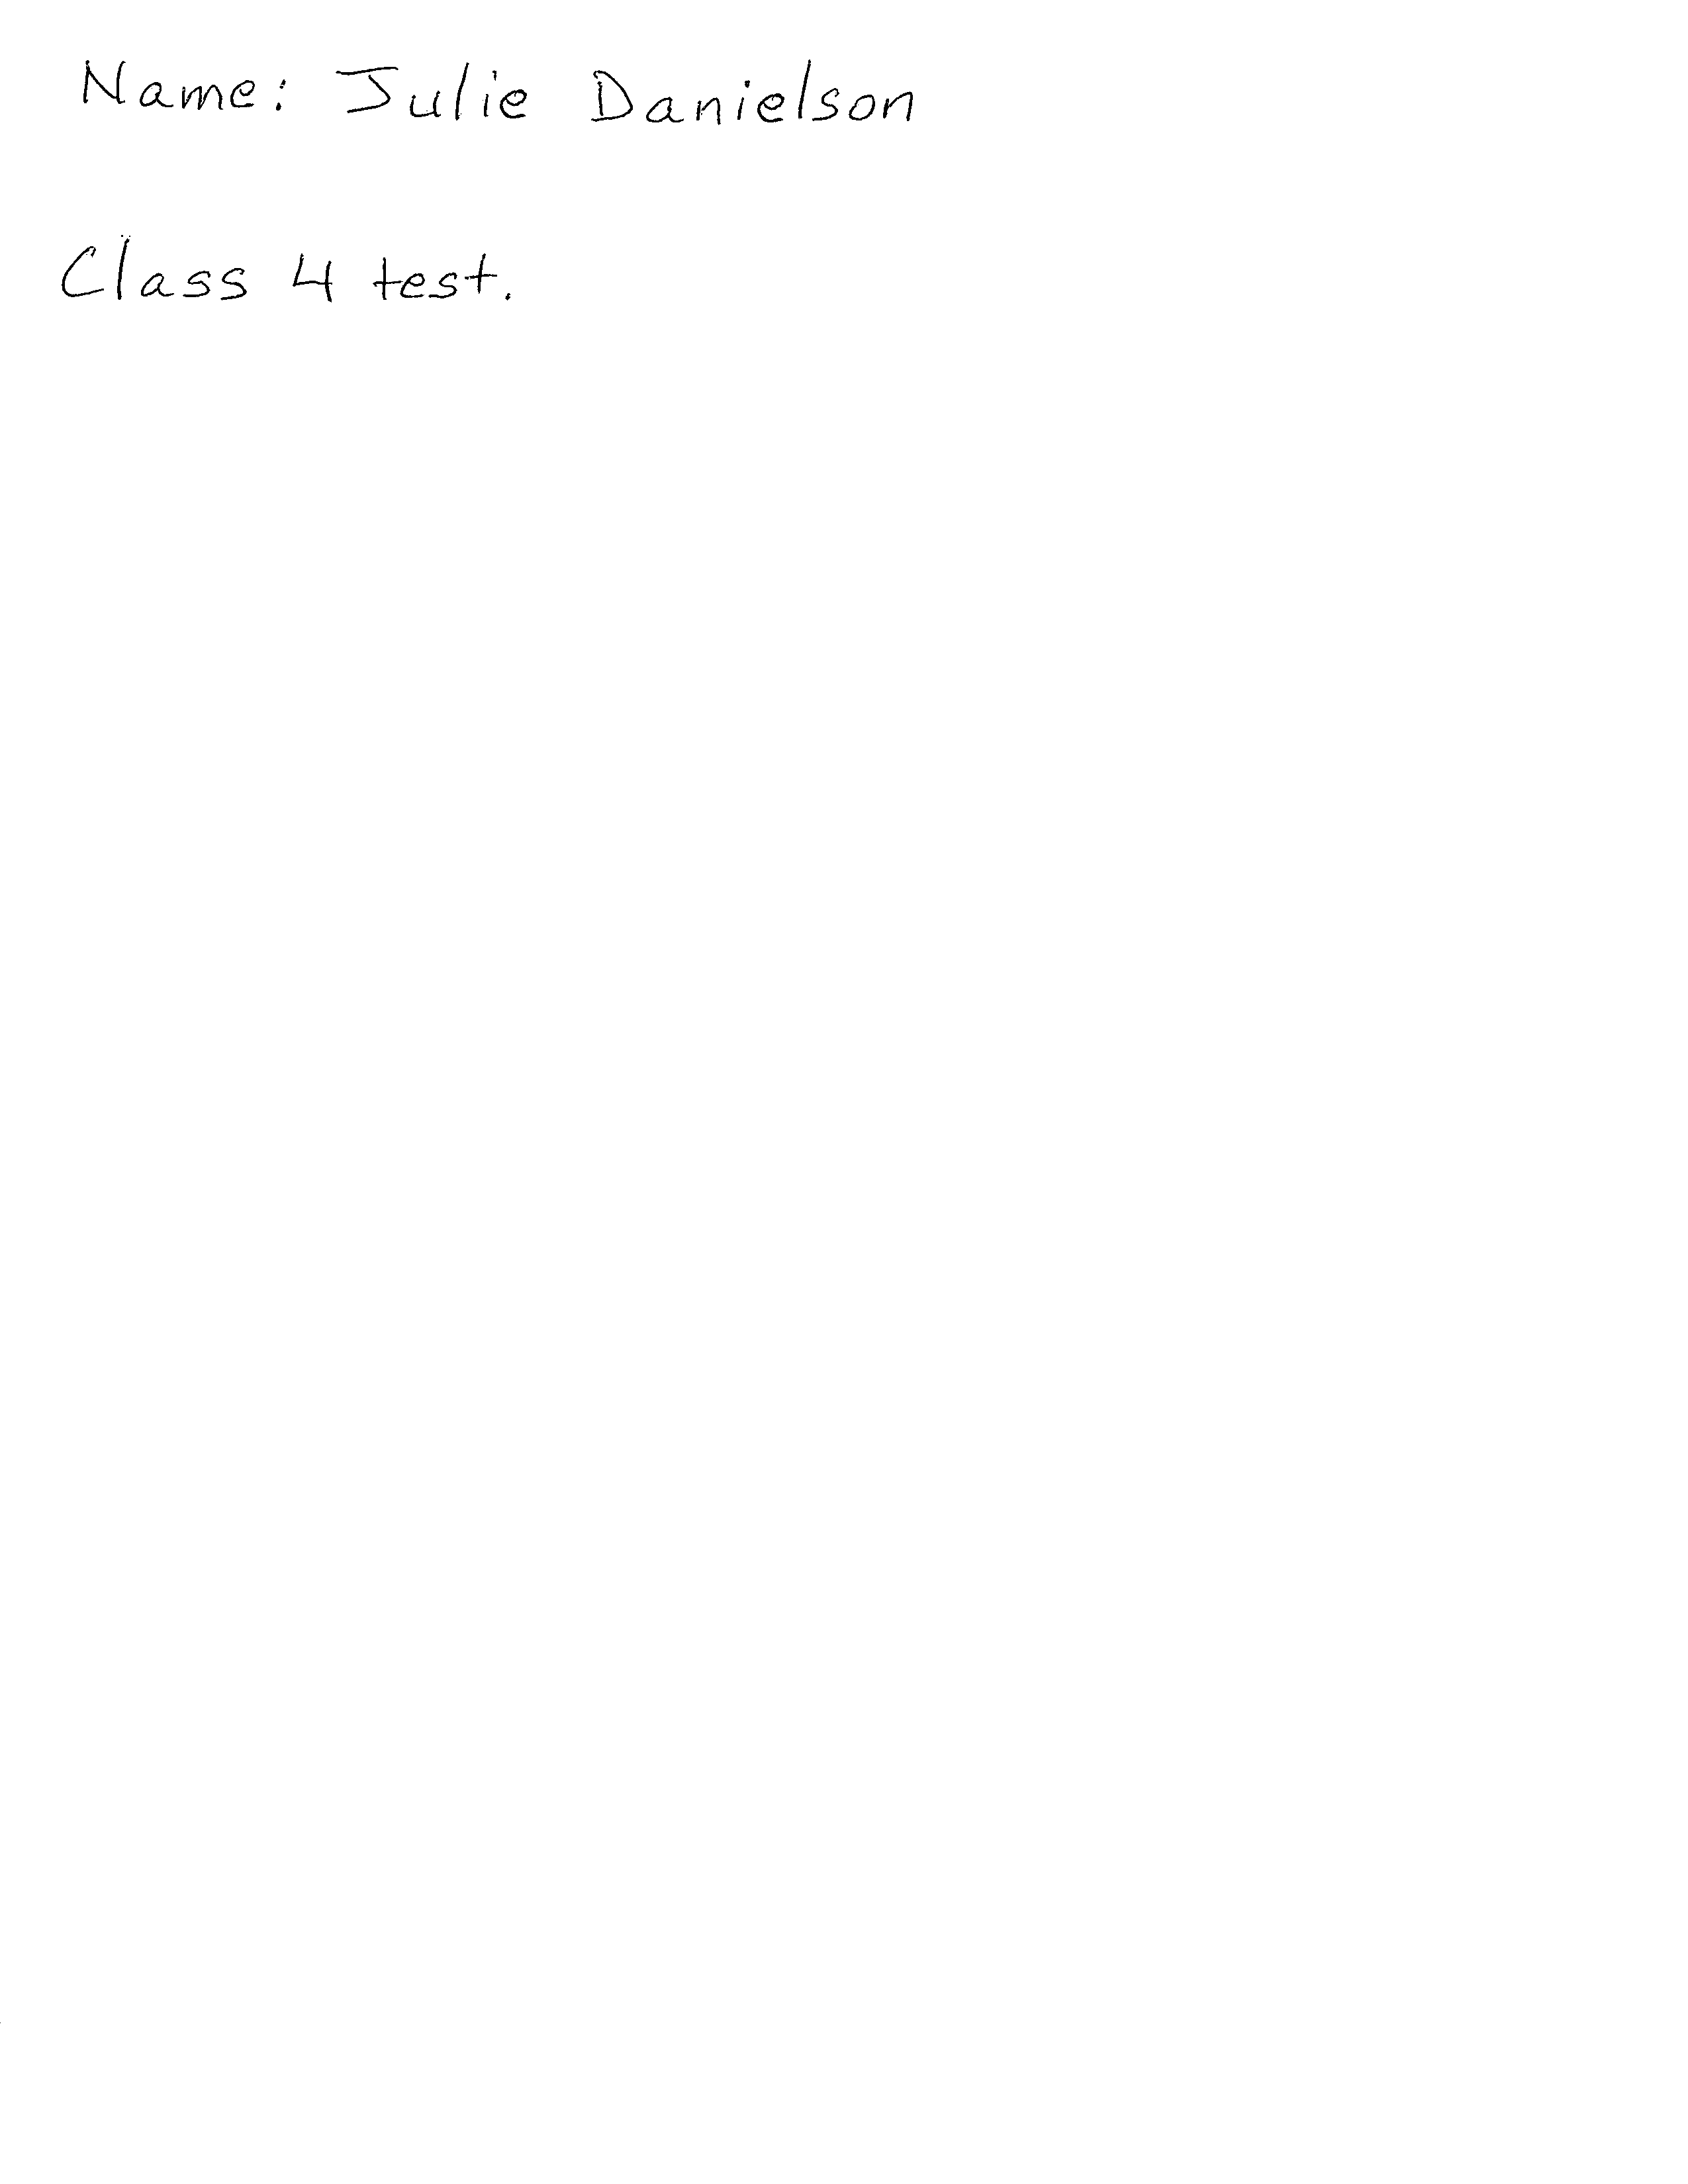 Name: Julie Danielson
Class 4 test.